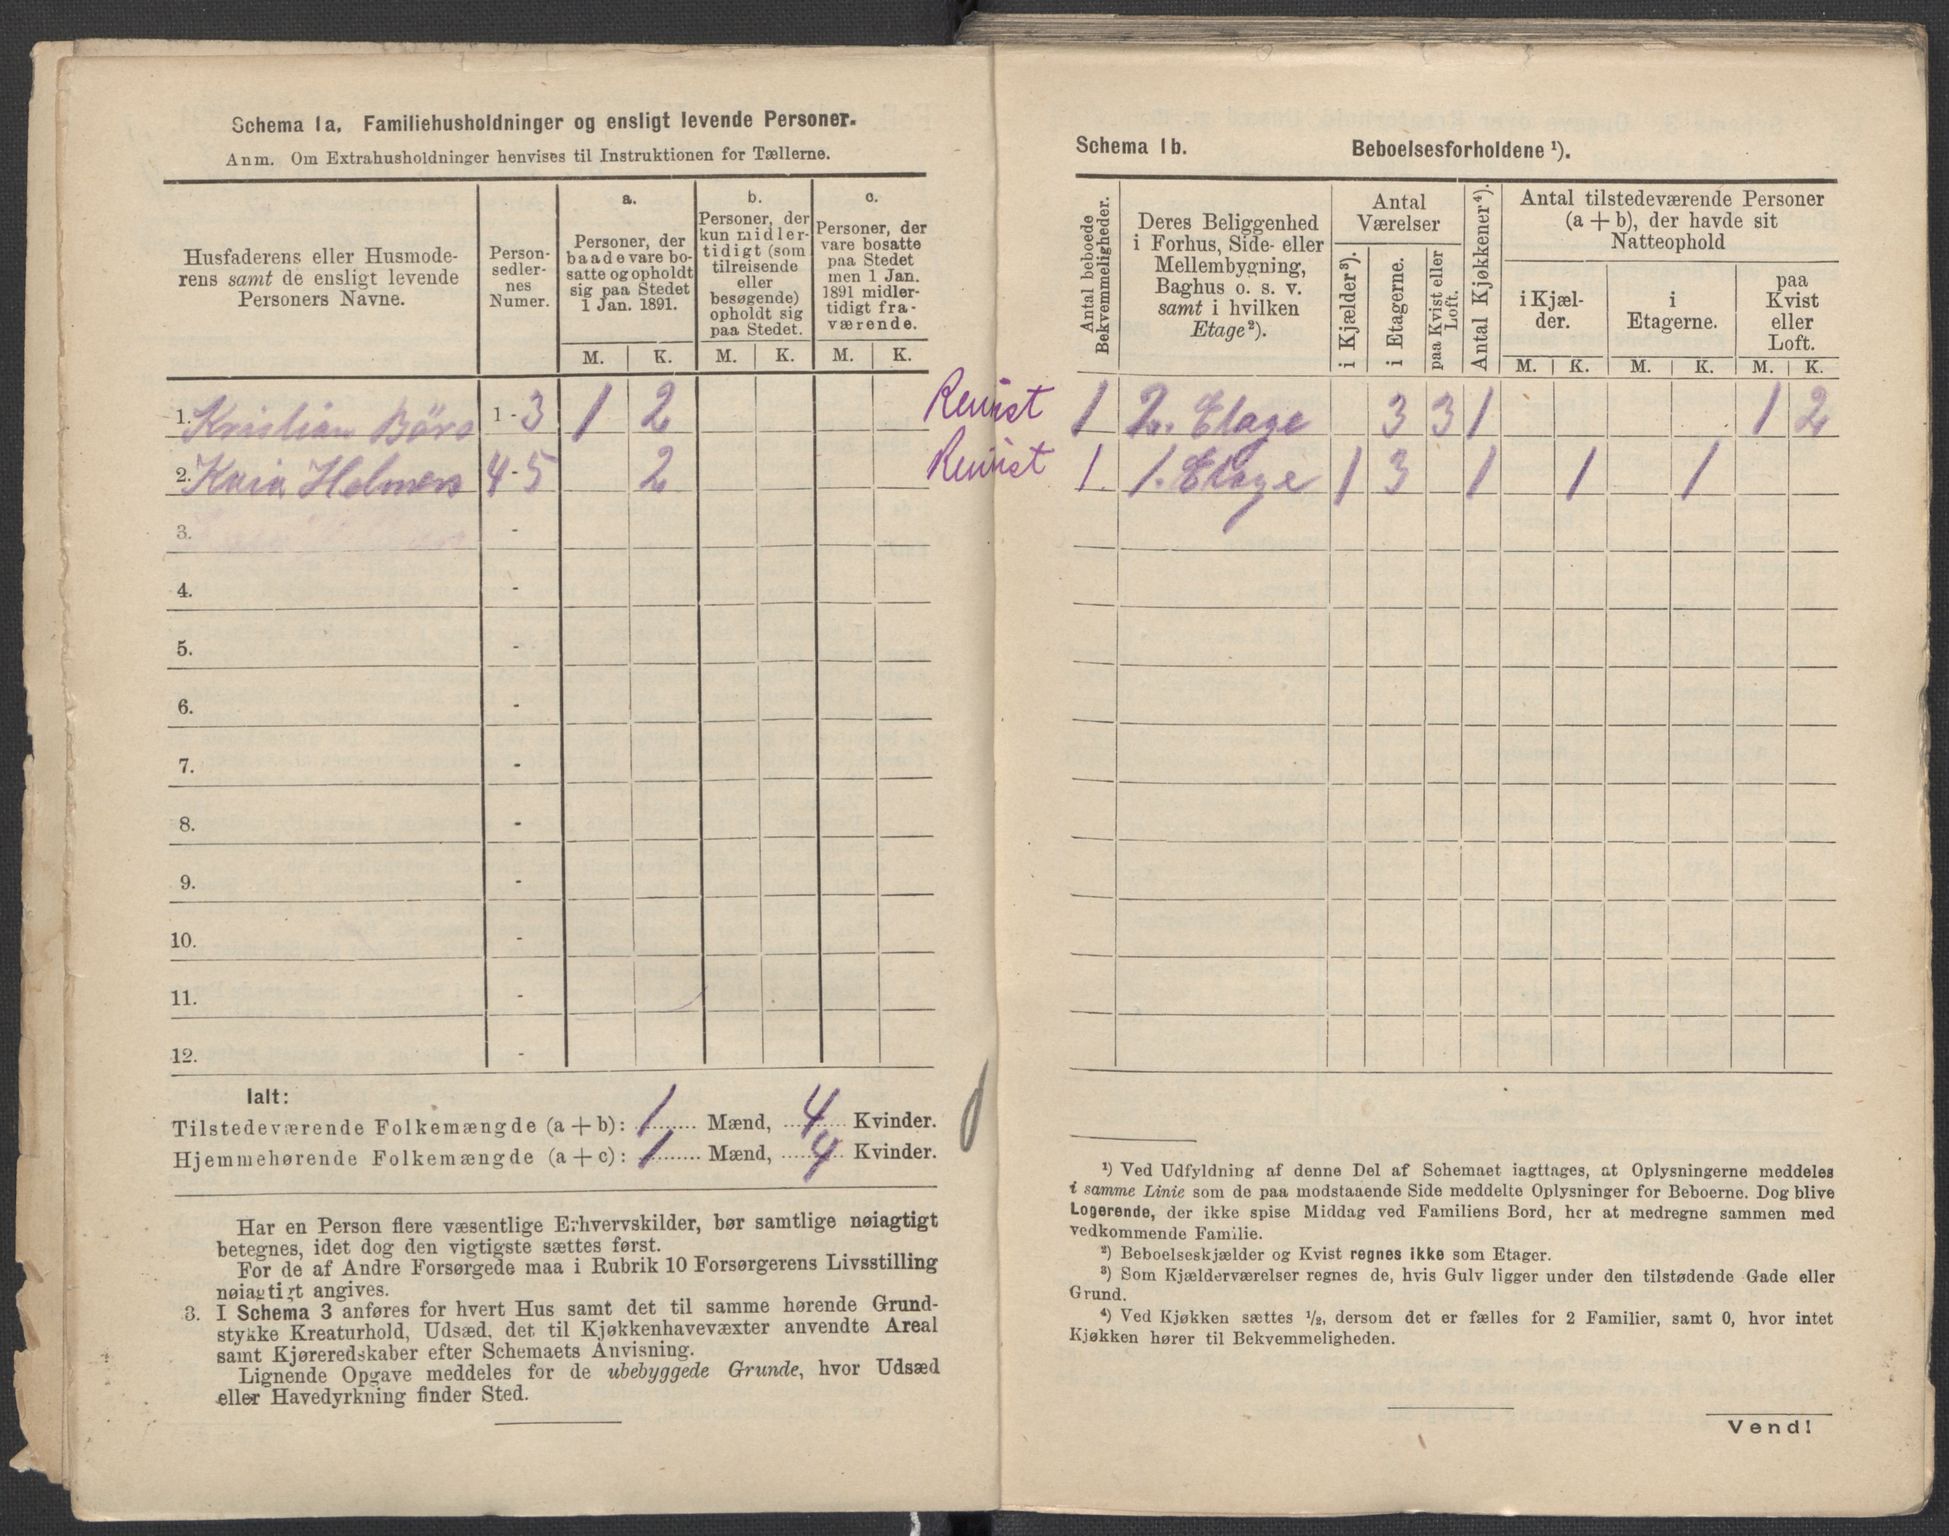 Schema 1a. Familiehusholdninger og ensligt levende Personer.
Anm. Om Extrahusholdninger henvises til Instruktionen for Tællerne.
Husfaderens eller Husmoderens samt de ensligt levende Personers Navne.
Personsedlernes Numer.
a. Personer, der baade vare bosatte og opholdt sig paa Stedet 1 Jan. 1891.
b. Personer, der kun midlertidigt (som tilreisende eller besøgende) opholdt sig paa Stedet.
c. Personer, der vare bosatte paa Stedet men 1 Jan. 1891 midlertidigt fraværende.
M. K. M. K. M. K.
1. Kristian Börs 1-3 1 2
2. Holmers 4-5 2
3. -
4. -
5. -
6. -
7. -
8. -
9. -
10. -
11. -
12. -
Ialt:
Tilstedeværende Folkemængde (a + b): 1 Mænd, 4 Kvinder.
Hjemmehørende Folkemængde (a + c): 1 Mænd, 4 Kvinder.
Har en Person flere væsentlige Erhvervskilder, bør samtlige nøiagtigt
betegnes, idet dog den vigtigste sættes først.
For de af Andre Forsørgede maa i Rubrik 10 Forsørgerens Livsstilling
nøiagtigt angives.
3. I Schema 3 anføres for hvert Hus samt det til samme hørende Grund-
stykke Kreaturhold, Udsæd, det til Kjøkkenhavevæxter anvendte Areal
samt Kjøreredskaber efter Schemaets Anvisning.
Lignende Opgave meddeles for de ubebyggede Grunde, hvor Udsæd
eller Havedyrkning finder Sted.
Schema 1b. Beboelsesforholdene ¹).
Antal beboede Bekvemmeligheder.
Deres Beliggenhed i Forhus, Side- eller Mellembygning, Baghus o. s. v. samt i hvilken Etage²).
Antal Værelser
i Kjælder³).
i Etagerne.
paa Kvist eller Loft.
Antal Kjøkkener⁴).
Antal tilstedeværende Personer (a + b), der havde sit Natteophold
i Kjælder.
i Etagerne.
paa Kvist eller Loft.
M. K. M. K. M. K.
Revist 1 2. Etage 3 3 1 1 2
Revist 1. 1. Etage 1 3 1 1 1
¹) Ved Udfyldning af denne Del af Schemaet iagttages, at Oplysningerne meddeles
i samme Linie som de paa modstaaende Side meddelte Oplysninger for Beboerne. Dog blive
Logerende, der ikke spise Middag ved Familiens Bord, her at medregne sammen med
vedkommende Familie.
²) Beboelseskjælder og Kvist regnes ikke som Etager.
³) Som Kjælderværelser regnes de, hvis Gulv ligger under den tilstødende Gade eller
Grund.
⁴) Ved Kjøkken sættes ½, dersom det er fælles for 2 Familier, samt 0, hvor intet
Kjøkken hører til Bekvemmeligheden.
Vend!